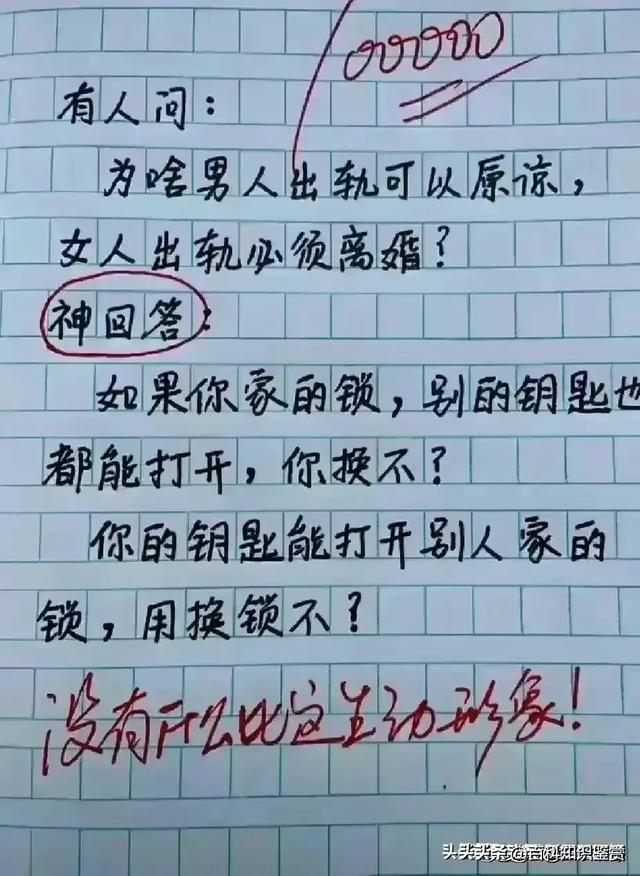 有人问：
为啥男人出轨可以原谅，
女人出轨必须离婚？
神回答：
如果你家的锁，别的钥匙也
都能打开，你换不？
你的钥匙能打开别人家的
锁，用换锁不？
没有什么比这生动形象！